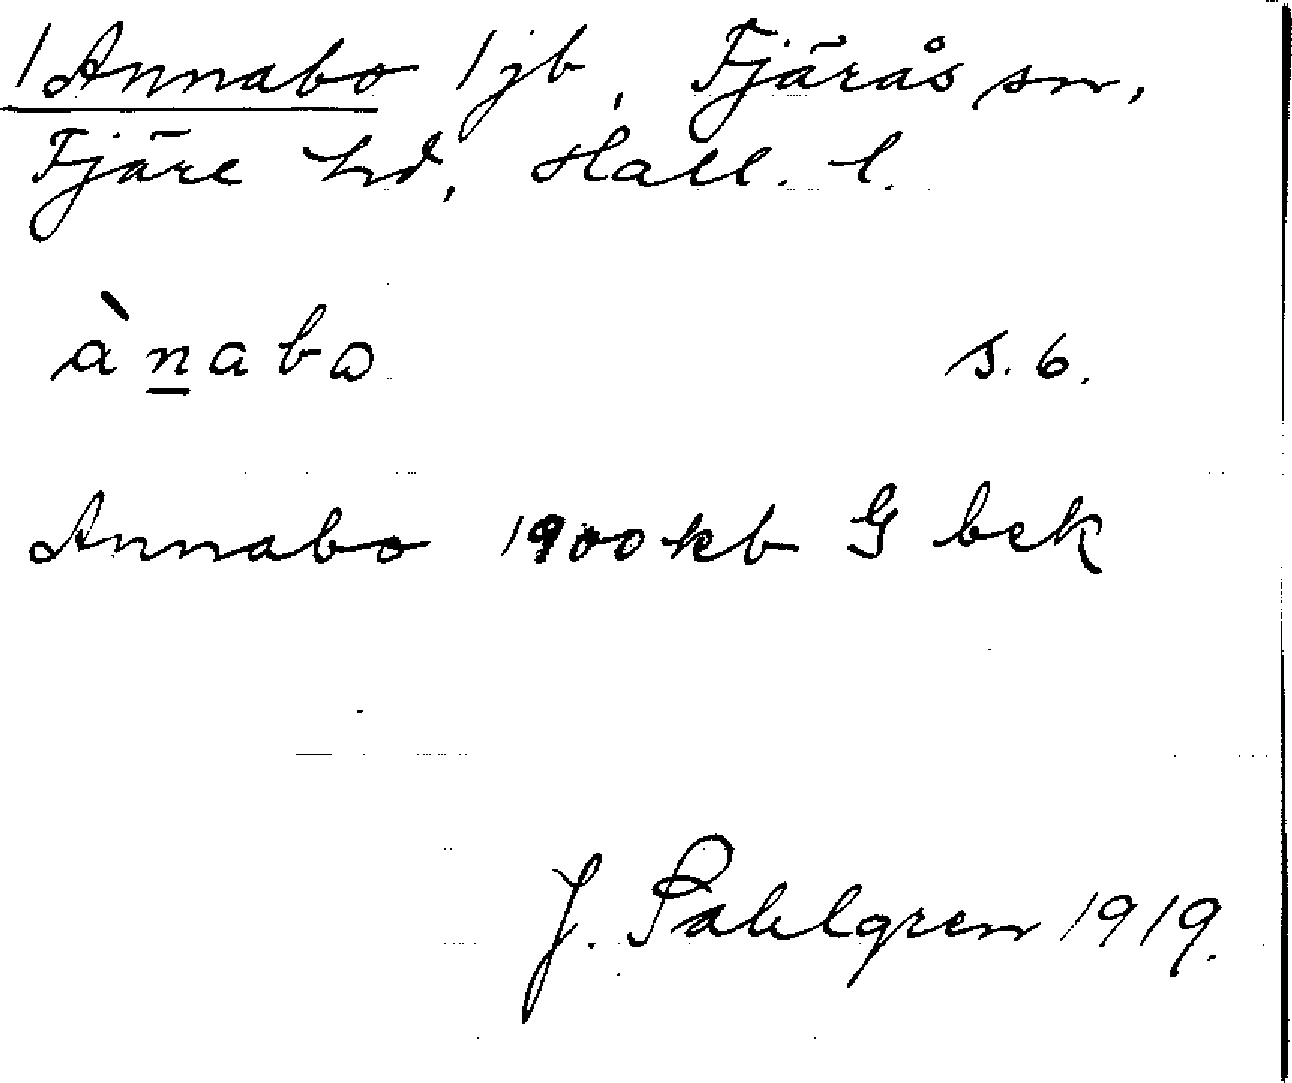 /Annabo/jb, Fjärås sn,
Fjäre hd, Hall. l.
ànabo s. 6.
Annabo 1900 kb G bek
J. Sahlgren 1919.